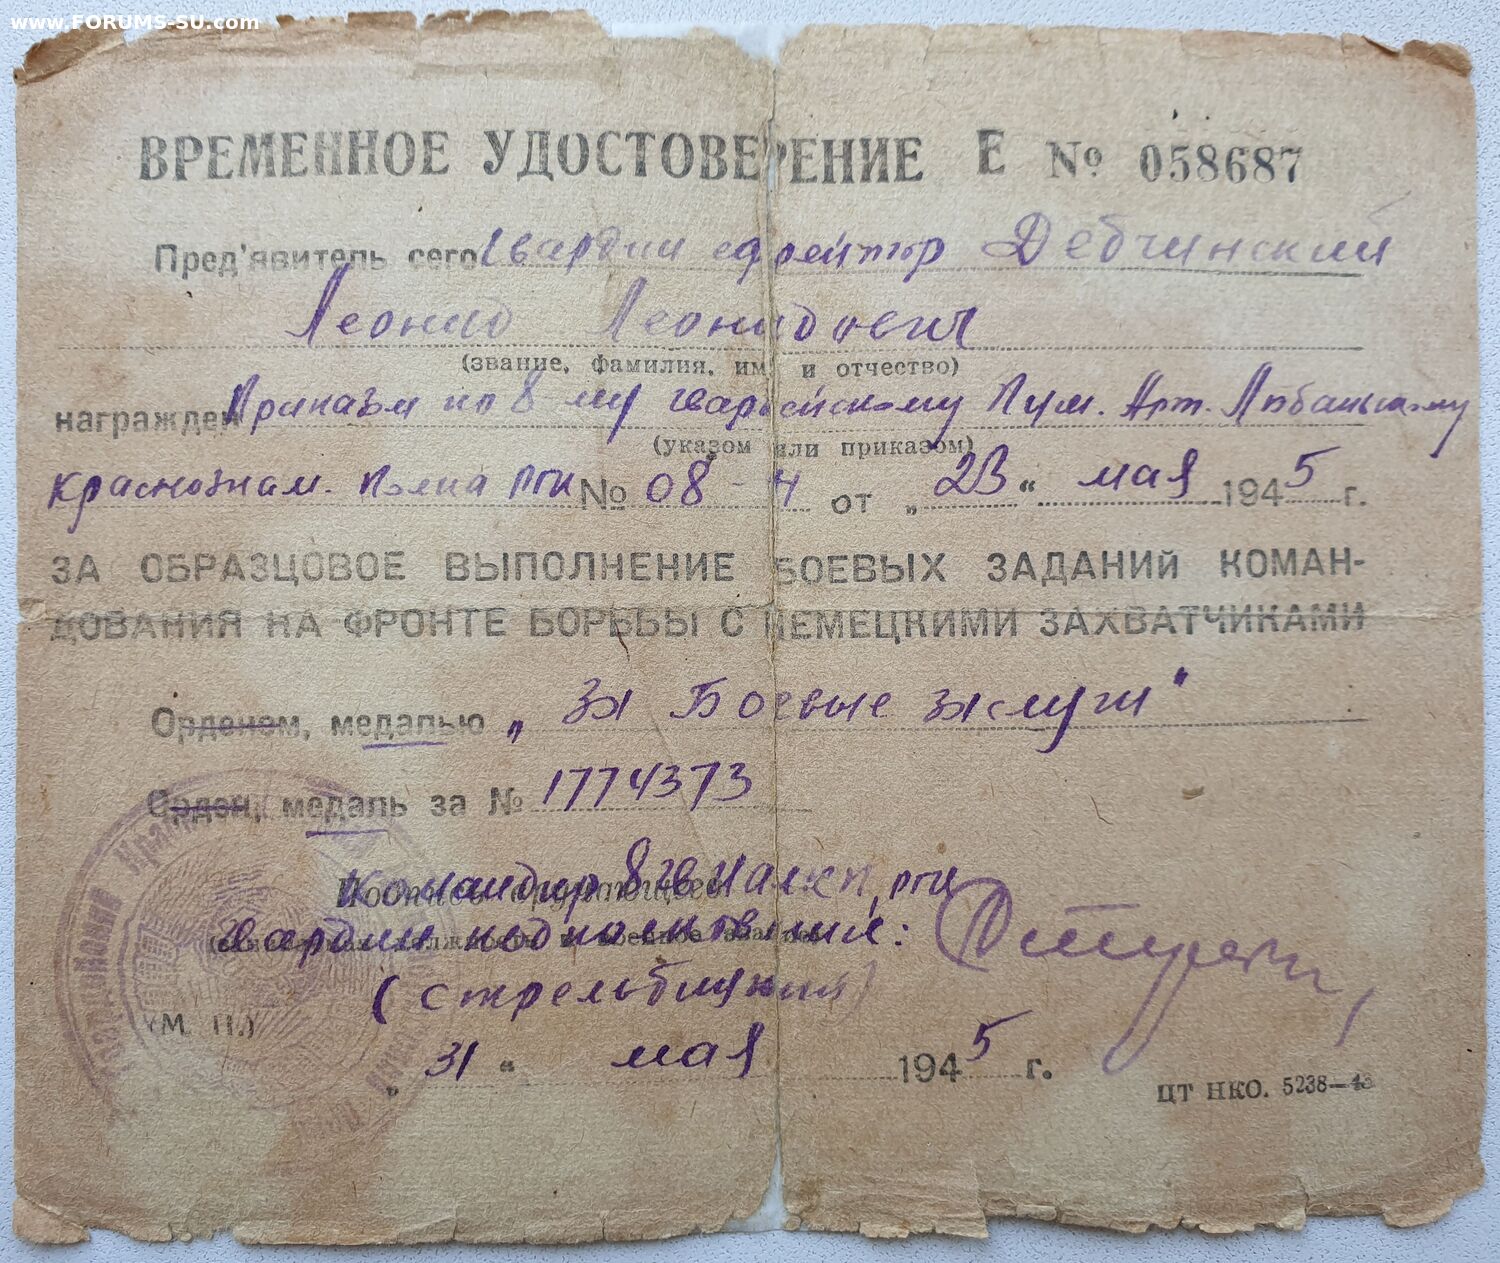 www.FORUMS-SU.com
ВРЕМЕННОЕ УДОСТОВЕРЕНИЕ Е № 058687
Пред'явитель сего Гвардии ефрейтор Дебчинский
Леонид Леонидович
(звание, фамилия, имя и отчество)
награжден Приказом по 8му гвардейскому Пул. Арт. Любаньскому
(указом или приказом)
Краснознам. полка РГК № 08-Н от „23“ мая 1945 г.
ЗА ОБРАЗЦОВОЕ ВЫПОЛНЕНИЕ БОЕВЫХ ЗАДАНИЙ КОМАН-
ДОВАНИЯ НА ФРОНТЕ БОРЬБЫ С НЕМЕЦКИМИ ЗАХВАТЧИКАМИ
Орденом, медалью „За Боевые заслуги"
Орден, медаль за № 1774373
Командир 8 гв РГК
Гвардии подполковник:
(М. П.)
„31“ мая 1945 г.
ЦТ НКО. 5238—43